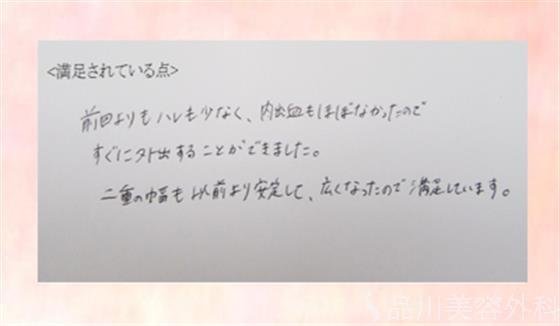 <満足されている点>
前回よりもハレも少なく、内出血もほぼなかったので
すぐに外出することができました。
二重の幅も以前より安定して、広くなったので満足しています。
品川美容外科